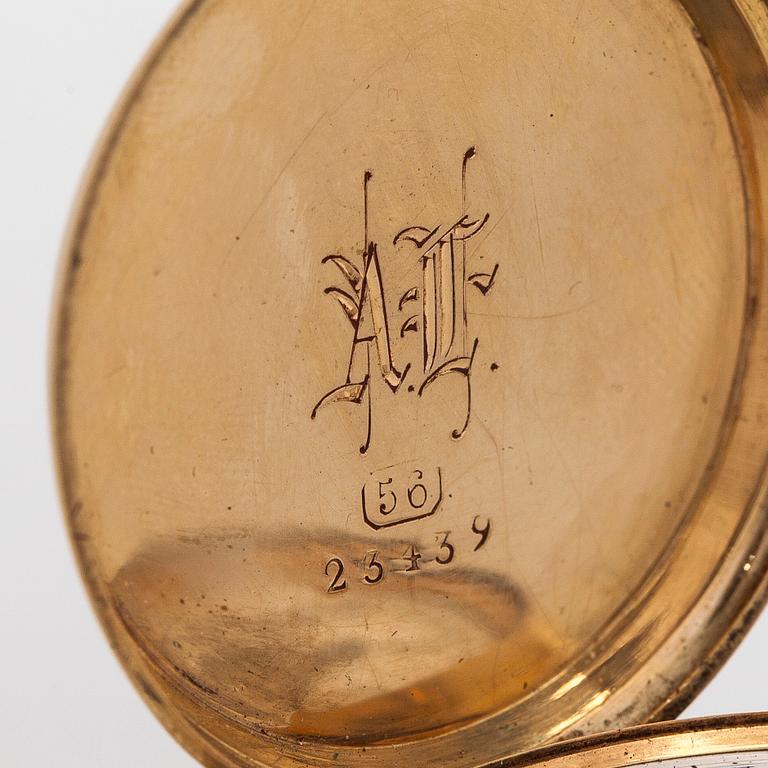 A. L.
56
23439